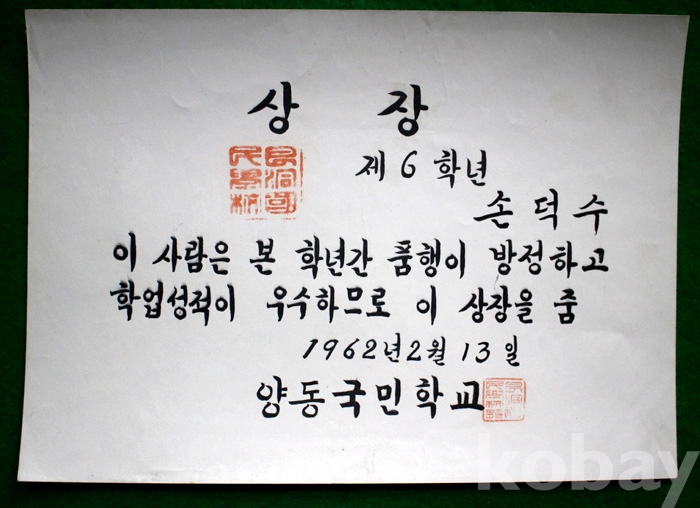 상 장
제 6 학년
손덕수
이 사람은 본 학년간 품행이 방정하고
학업성적이 우수하므로 이 상장을 줌
1962년 2월 13일
양동국민학교
kobay